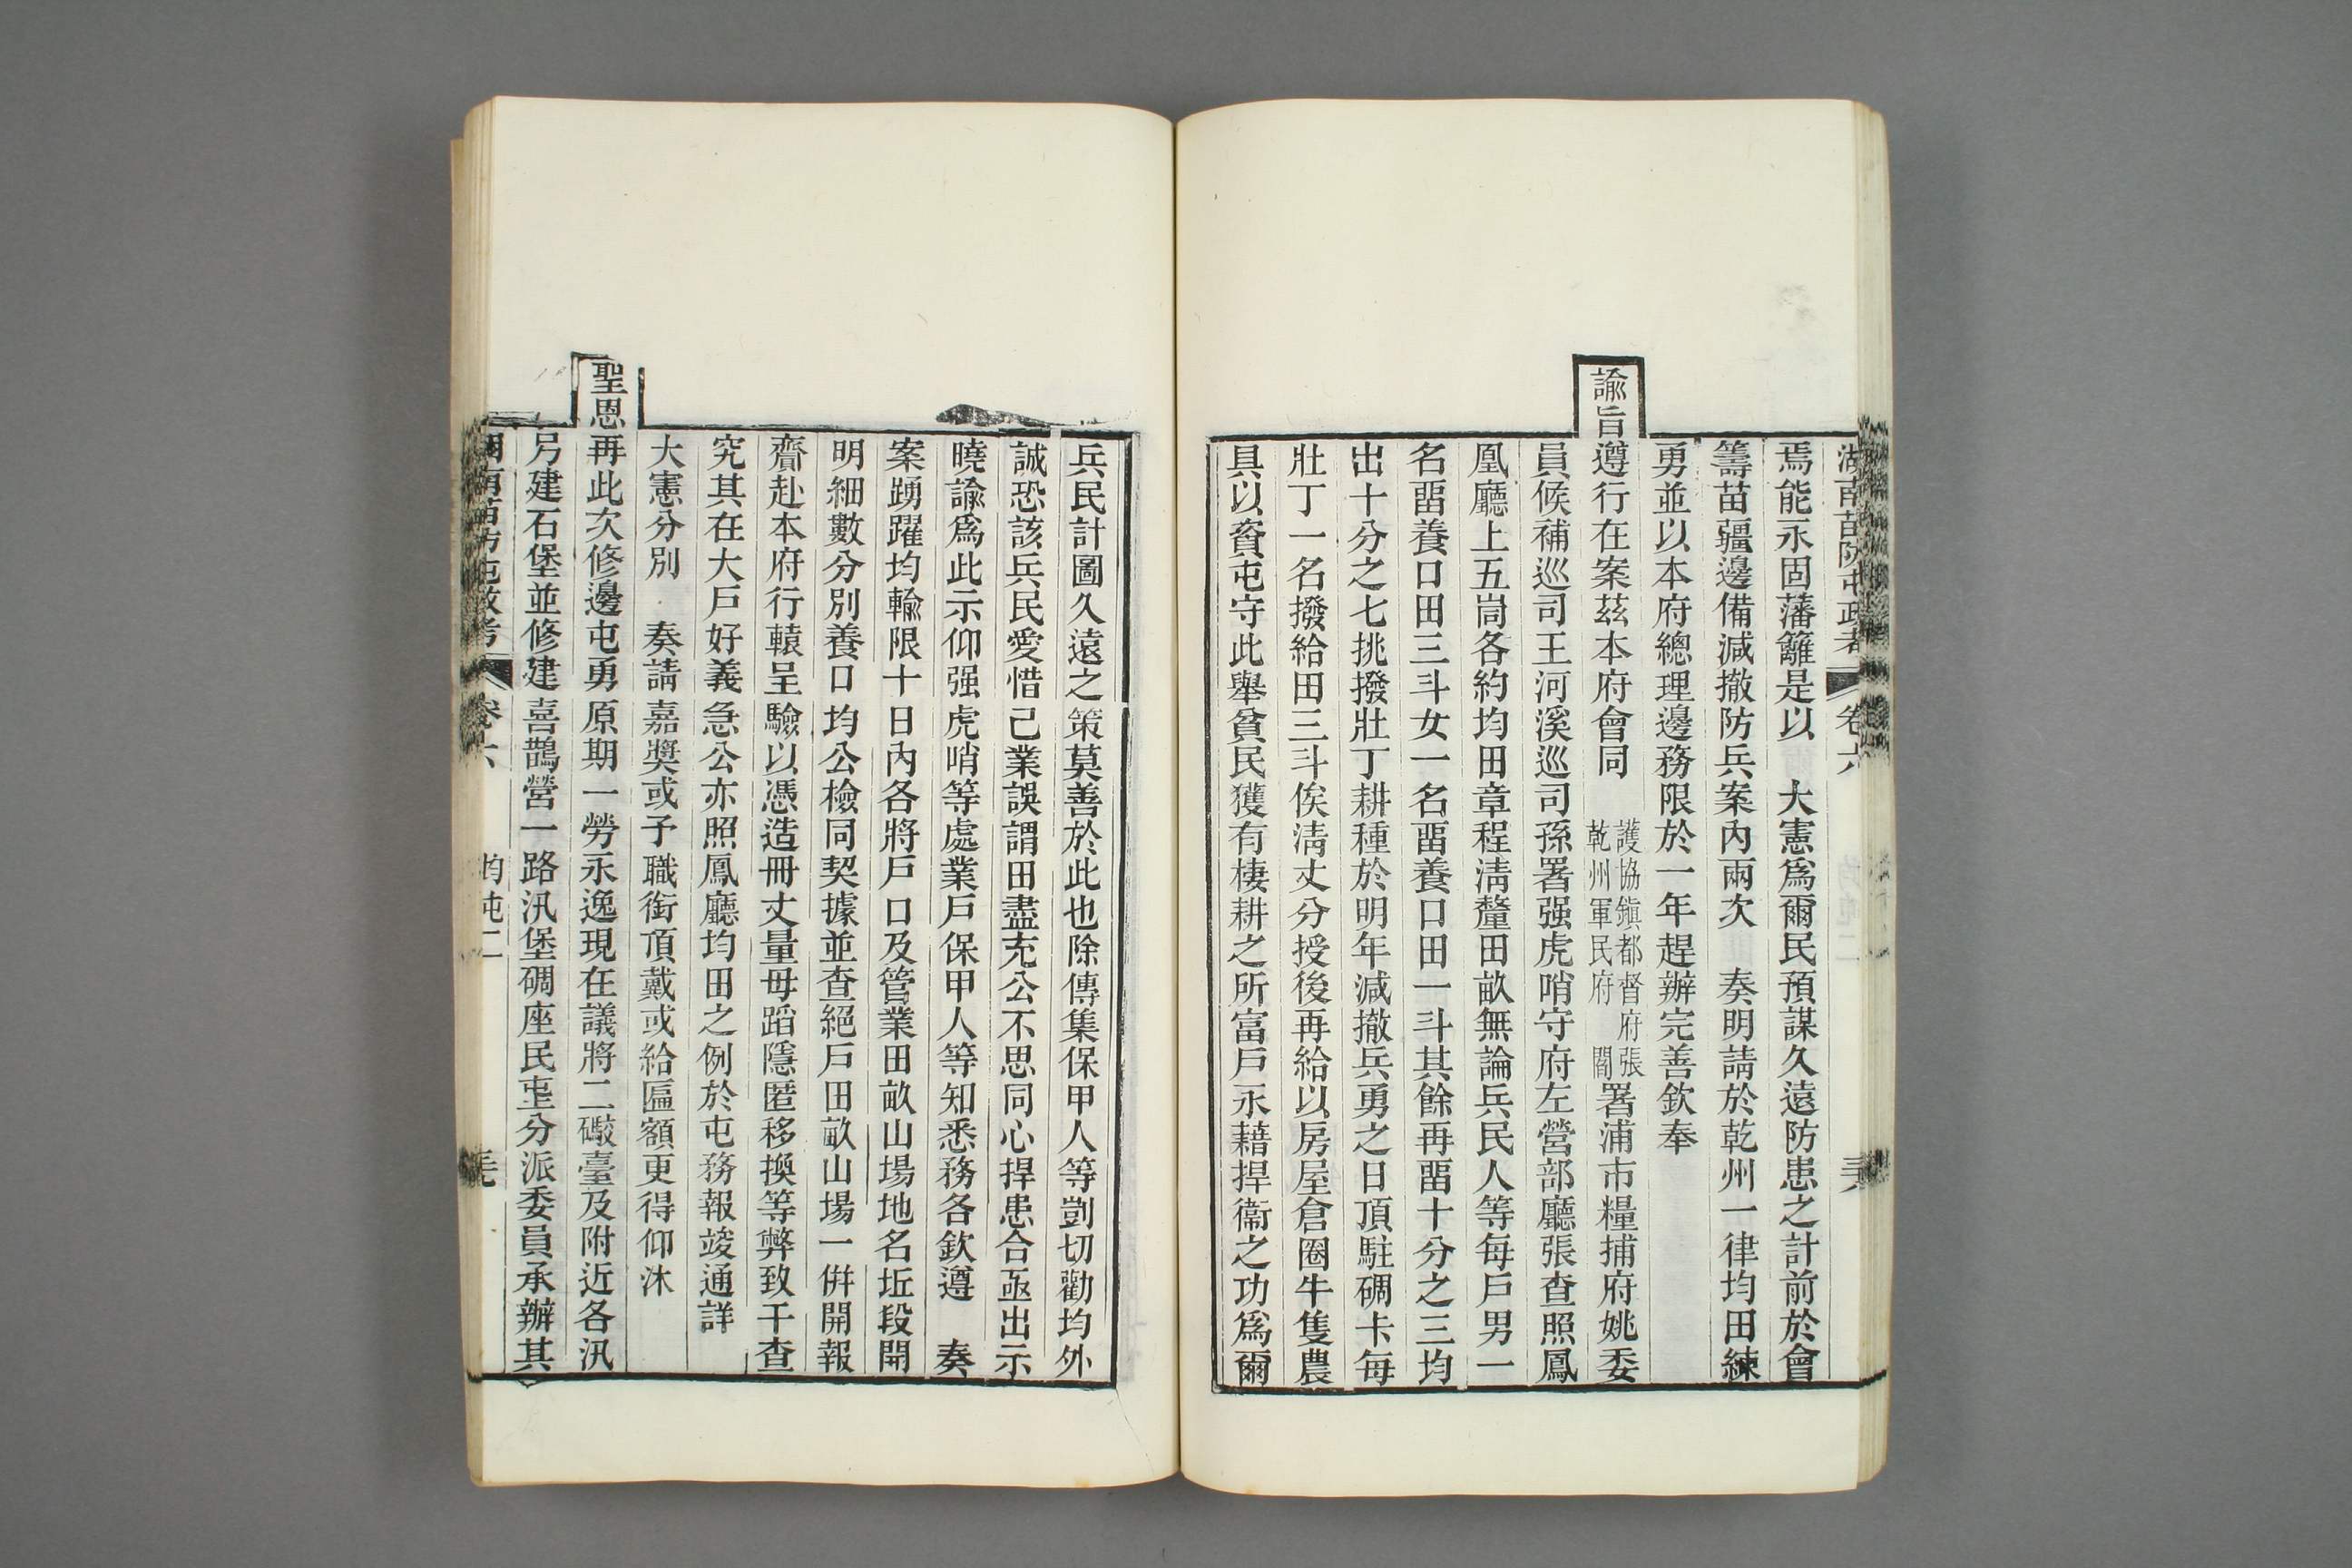 湖南苗防屯政考 卷六
焉能永固藩籬是以 大憲爲爾民預謀久遠防患之計前於會
籌苗疆邊備減撤防兵案內兩次 奏明請於乾州一律均田練
勇並以本府總理邊務限於一年趕辦完善欽奉
諭旨遵行在案茲本府會同 護協鎭都督府張 乾州軍民府 閻 署浦市糧捕府姚委
員候補巡司王河溪巡司孫署强虎哨守府左營部廳張查照鳳
凰廳上五峝各約均田章程清釐田畝無論兵民人等每戶男一
名畱養口田三斗女一名畱養口田一斗其餘再畱十分之三均
出十分之七挑撥壯丁耕種於明年減撤兵勇之日頂駐碉卡每
壯丁一名撥給田三斗俟清丈分授後再給以房屋倉圈牛隻農
具以資屯守此舉貧民獲有棲耕之所富戶永藉捍衞之功爲爾
兵民計圖久遠之策莫善於此也除傳集保甲人等剴切勸均外
誠恐該兵民愛惜己業誤謂田盡充公不思同心捍患合亟出示
曉諭爲此示仰强虎哨等處業戶保甲人等知悉務各欽遵 奏
案踴躍均輸限十日內各將戶口及管業田畝山場地名坵段開
明細數分別養口均公檢同契據並查絕戶田畝山場一倂開報
齎赴本府行轅呈驗以憑造冊丈量毋蹈隱匿移換等弊致干查
究其在大戶好義急公亦照鳳廳均田之例於屯務報竣通詳
大憲分別 奏請嘉獎或予職銜頂戴或給匾額更得仰沐
聖恩再此次修邊屯勇原期一勞永逸現在議將二礮臺及附近各汛
另建石堡並修建喜鵲營一路汛堡碉座民屯分派委員承辦其
湖南苗防屯政考 卷六 均屯二